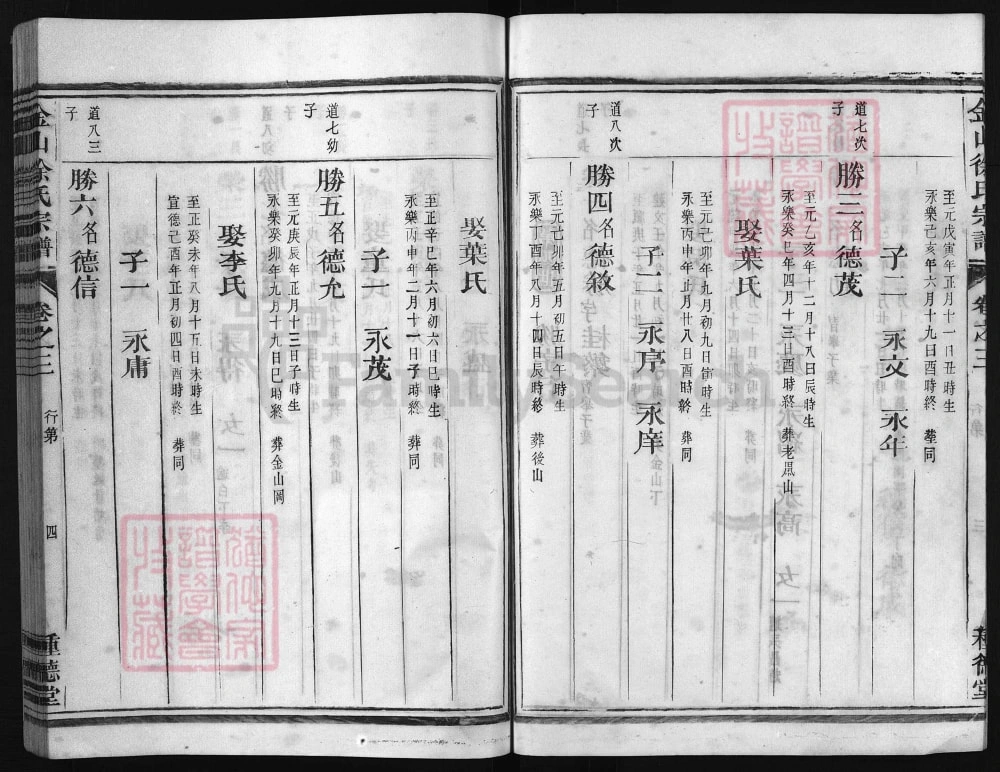 金山徐氏宗譜 卷之三
至元戊寅年正月十一日丑時生
永樂己亥年六月十九日酉時終 塟同
子二 永文 永年
道七次子
勝三名德茂
至元乙亥年十二月十八日辰時生
永樂癸巳年四月十三日酉時終 葬老鳳山
娶葉氏
至元己卯年九月初九日寅時生
永樂丙申年正月廿八日酉時終 葬同
子二 永序 永庠
道八次子
勝四名德敘
至元己卯年五月初五日午時生
永樂丁酉年八月十四日辰時終 葬後山
娶葉氏
至正辛巳年六月初六日巳時生
永樂丙申年二月十一日子時終 葬同
子一 永茂
道七幼子
勝五名德允
至元庚辰年正月十三日子時生
永樂癸卯年九月十九日巳時終 葬金山岡
娶李氏
至正癸未年八月十五日未時生
宣德己酉年正月初四日酉時終 葬同
子一 永庸
道八三子
勝六名德信
金山徐氏宗譜 卷之三 行第 四 種德堂
FamilySearch